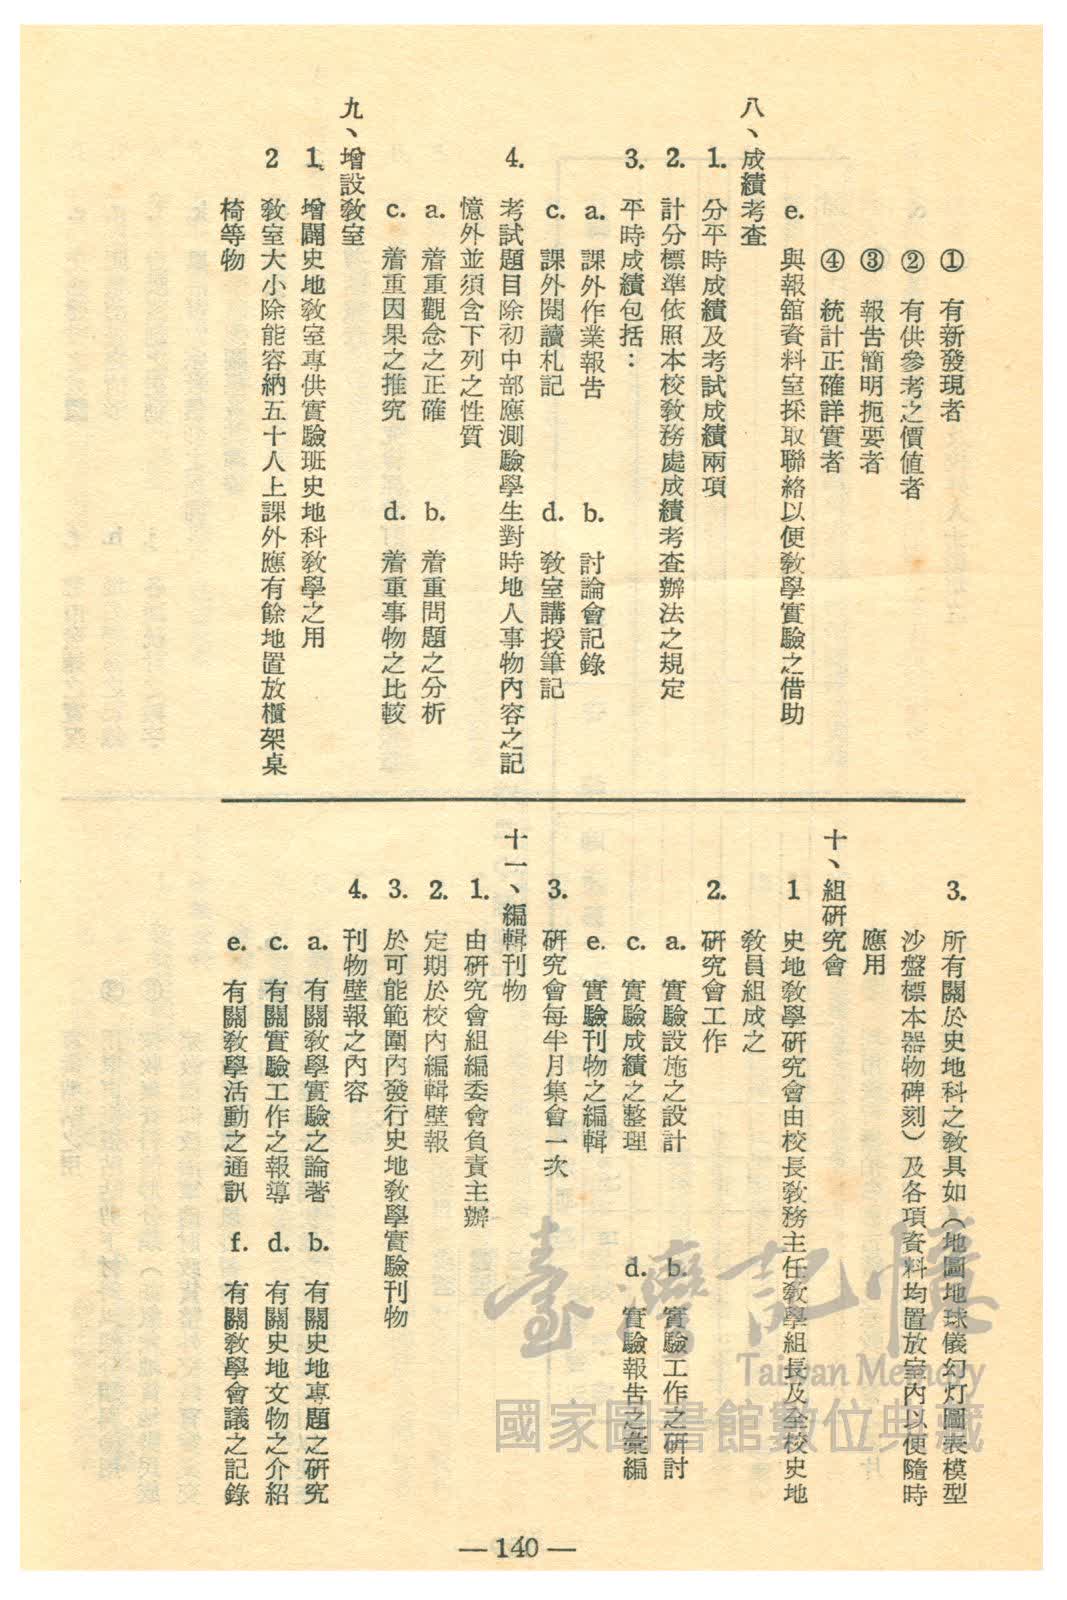 ① 有新發現者
② 有供參考之價值者
③ 報告簡明扼要者
④ 統計正確詳實者
e. 與報舘資料室採取聯絡以便敎學實驗之借助
八、成績考查
1. 分平時成績及考試成績兩項
2. 計分標準依照本校敎務處成績考查辦法之規定
3. 平時成績包括：
a. 課外作業報告 b. 討論會記錄
c. 課外閱讀札記 d. 敎室講授筆記
4. 考試題目除初中部應測驗學生對時地人事物內容之記
憶外並須含下列之性質
a. 着重觀念之正確 b. 着重問題之分析
c. 着重因果之推究 d. 着重事物之比較
九、增設敎室
1. 增闢史地敎室專供實驗班史地科敎學之用
2 敎室大小除能容納五十人上課外應有餘地置放櫃架桌
椅等物
3. 所有關於史地科之敎具如（地圖地球儀幻灯圖表模型
沙盤標本器物碑刻）及各項資料均置放室內以便隨時
應用
十、組研究會
1 史地敎學研究會由校長敎務主任敎學組長及全校史地
敎員組成之
2. 研究會工作
a. 實驗設施之設計 b. 實驗工作之研討
c. 實驗成績之整理 d. 實驗報告之彙編
e. 實驗刊物之編輯
3. 研究會每半月集會一次
十一、編輯刊物
1. 由研究會組編委會負責主辦
2. 定期於校內編輯壁報
3. 於可能範圍內發行史地敎學實驗刊物
4. 刊物壁報之內容
a. 有關敎學實驗之論著 b. 有關史地專題之研究
c. 有關實驗工作之報導 d. 有關史地文物之介紹
e. 有關敎學活動之通訊 f. 有關敎學會議之記錄
臺灣記憶
Taiwan Memory
國家圖書館數位典藏
—140—